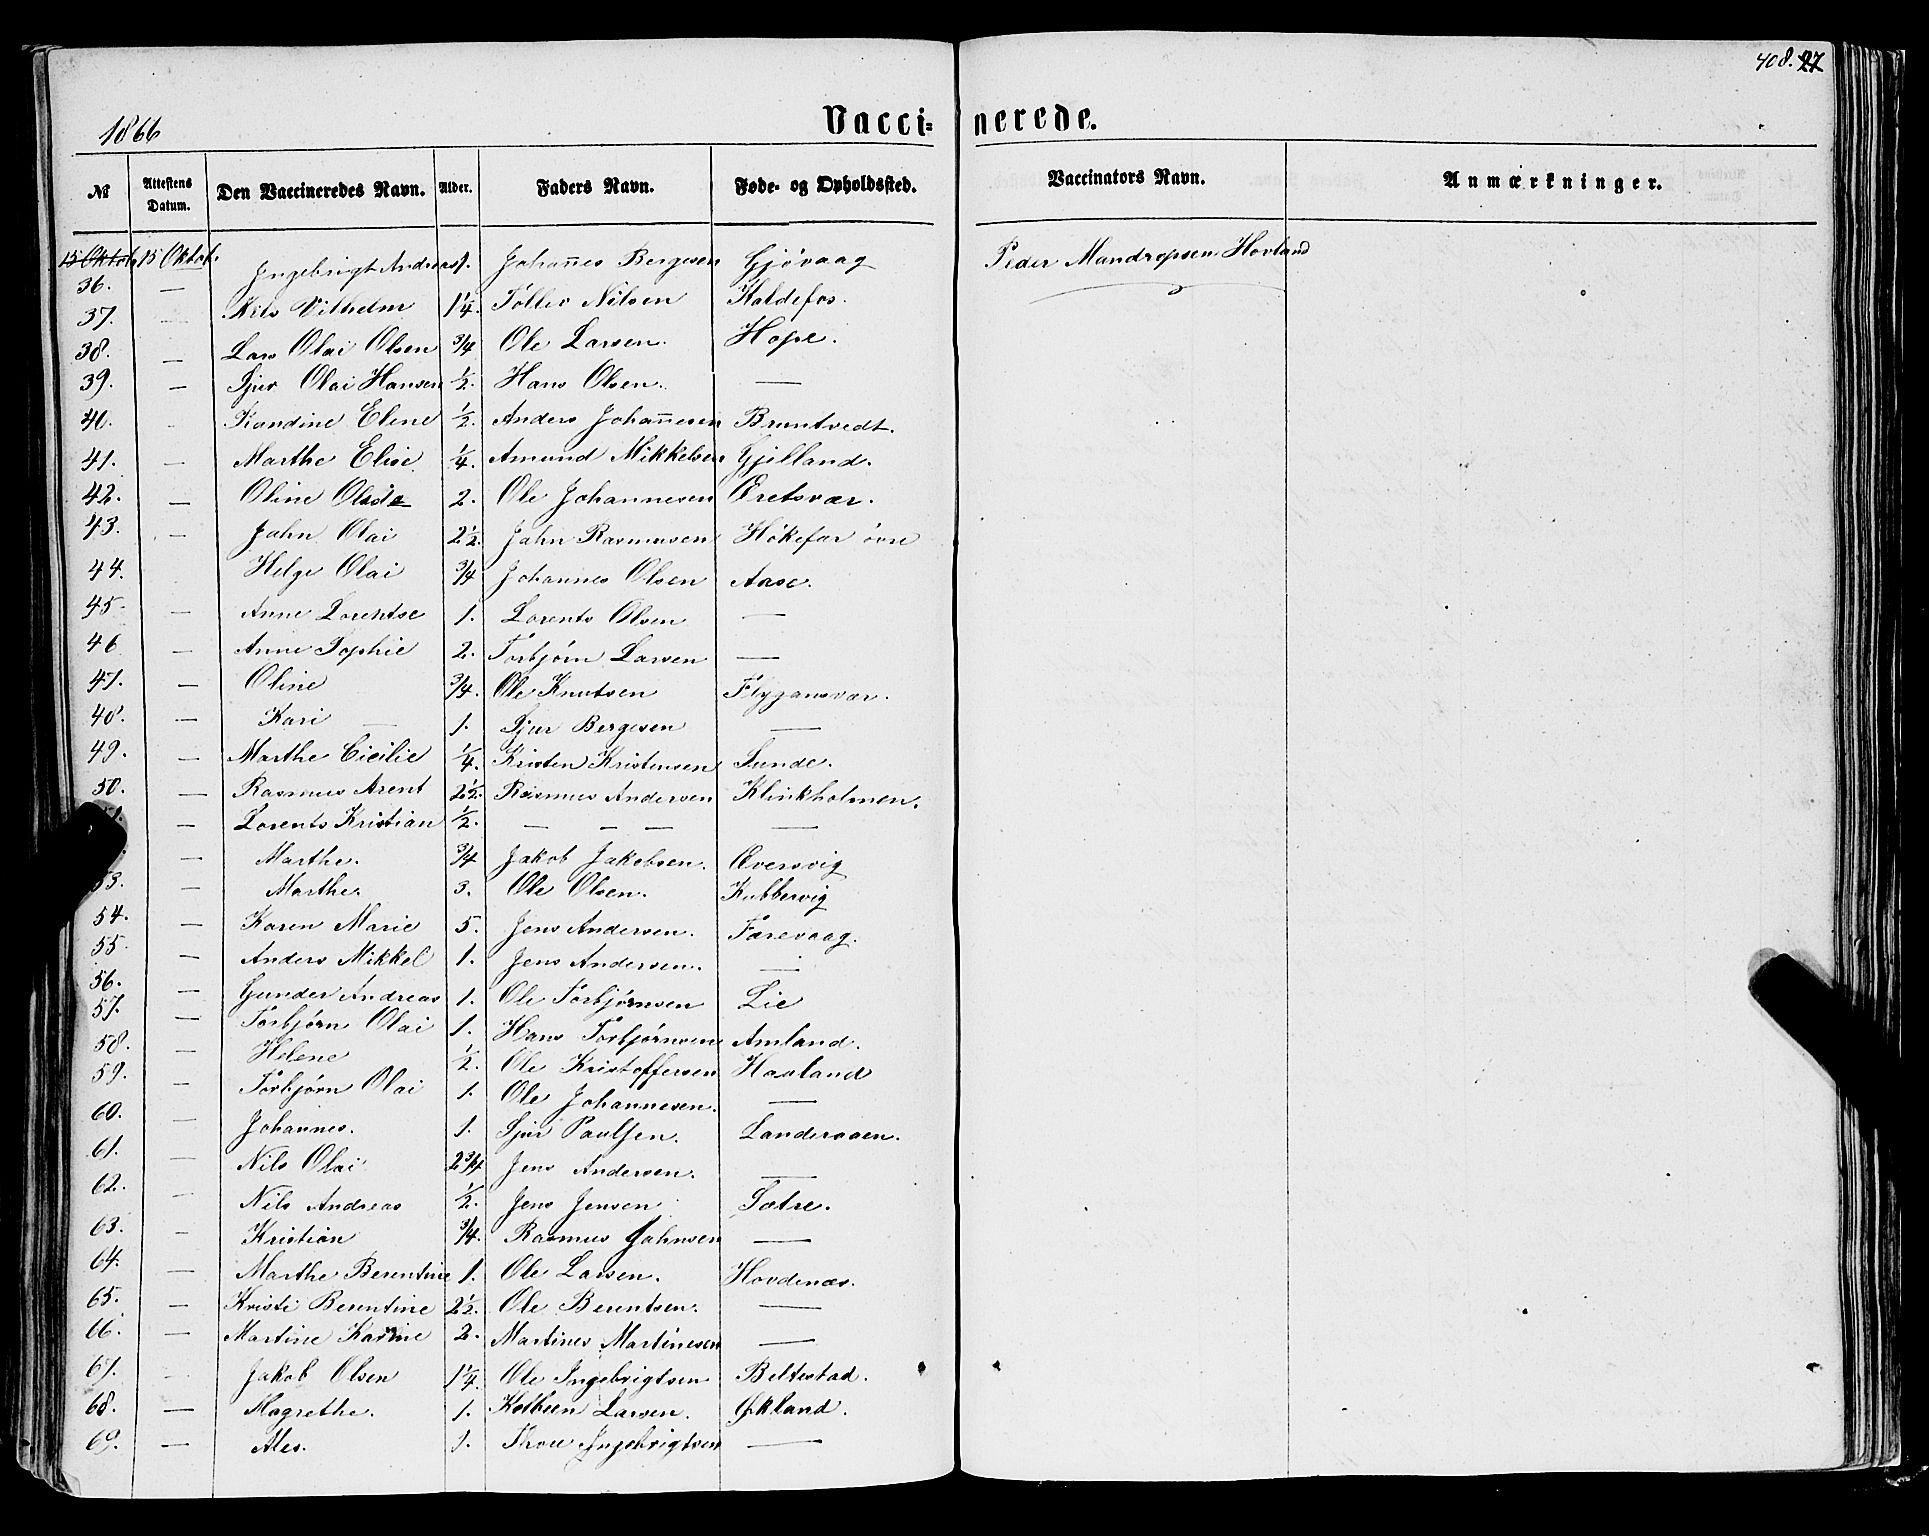 408. 27
1866
Vacci= nerede.
№ Attestens Datum. Den Vaccineredes Navn. Alder. Faders Navn. Føde- og Opholdssted. Vaccinators Navn. Anmærkninger.
15 Oktob. 15 Oktob.
36. — Ingebrigt Andreas 1. Johannes Bergesen Gjövaag Peder Mandropsen Hovland
37. — Nils Vilhelm 1 1/4. Töllev Nilsen Haldefos.
38. — Lars Olai Olsen 3/4 Ole Larsen. Hope.
39. — Sjur Olai Hansen 1/2. Hans Olsen. —
40. Kandine Eline 1/2. Anders Johannesen Bruntvedt.
41. — Marthe Elise 1/4. Amund Mikkelsen Gjilland.
42. — Oline 2. Ole Johannesen Œretsvær.
43. — John Olai 2 1/2. John Rasmusen Hökefær övre
44. Helge Olai 3/4 Johannes Olsen Aase.
45. — Anne Lorentse 1. Lorents Olsen —
46 — Anne Sophie 2. Torbjörn Larsen —
47. — Oline 3/4. Ole Knutsen Flygansvær.
48. — Kari — 1. Sjur Bergesen —
49. — Marthe Cicilie 1/4. Kristen Kristensen Sunde.
50. — Rasmus Arent 2 1/2. Rasmus Andersen Klinkholmen.
— Lorents Kristian 1/2. — — — —
— Marthe. 3/4 Jakob Jakobsen. Œversvig
53. — Marthe. 3. Ole Olsen. Kubbervig
54. — Karen Marie 5. Jens Andersen. Farevaag.
55. — Anders Mikkel 1. Jens Andersen. —
56. — Gunder Andreas 1. Ole Torbjörnsen Lie
57. — Torbjörn Olai 1. Hans Torbjörnsen Amland.
58. — Helene 1/2. Ole Kristoffersen Haaland
59. — Torbjörn Olai 1. Ole Johannesen. —
60. — Johannes. 1. Sjur Paulsen. Landeraaen.
61. — Nils Olai 2 3/4 Jens Andersen. —
62. — Nils Andreas 1/2. Jens Jensen Sætre.
63. — Kristian 3/4. Rasmus Johnsen —
64. — Marthe Berentine 1. Ole Larsen. Hovdenæs.
65. — Kristi Berentine 2 1/2. Ole Berentsen. —
66. — Martine Karine 2. Martines Martinesen —
67. Jakob Olsen 1 1/4. Ole Ingebrigtsen Beltestad.
68. — Magrethe. 1. Larsen. Økland.
69. — Ales. 1. Thore Ingebrigtsen —